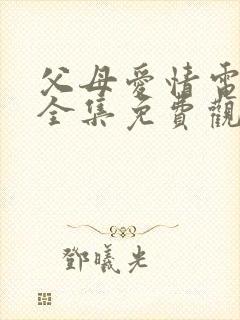 父母愛情電
全集免費觀
鄧曦光